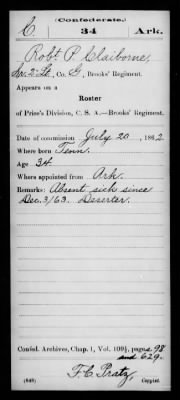 (Confederate.)
C. 34 Ark.
Robt P. Claiborne,
Sr. 2 Lt., Co. G, Brooks' Regiment.
Appears on a
Roster
of Price's Division, C. S. A.—Brooks' Regiment.
Date of commission July 20, 1862
Where born Tenn.
Age 34
Where appointed from Ark.
Remarks: Absent sick since
Dec. 3/63. Deserter.
Confed. Archives, Chap. 1, Vol. 109½, pages 98
and 629.
F. C. Pratz,
(640) Copyist.